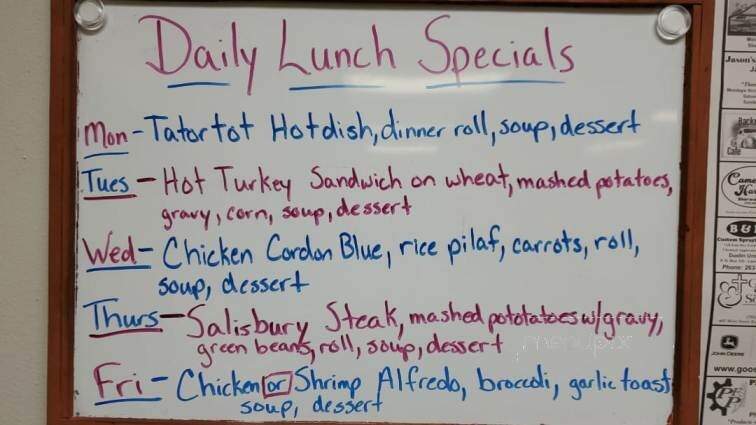 Daily Lunch Specials
Mon - Tatortot Hotdish, dinner roll, soup, dessert
Tues - Hot Turkey Sandwich on wheat, mashed potatoes,
gravy, corn, soup, dessert
Wed - Chicken Cordon Blue, rice pilaf, carrots, roll,
soup, dessert
Thurs - Salisbury Steak, mashed pototatoes w/gravy,
green beans, roll, soup, dessert
menupix
Fri - Chicken or Shrimp Alfredo, broccoli, garlic toast
soup, dessert
Jason's
Cafe
B & B
JOHN DEERE
www.goos